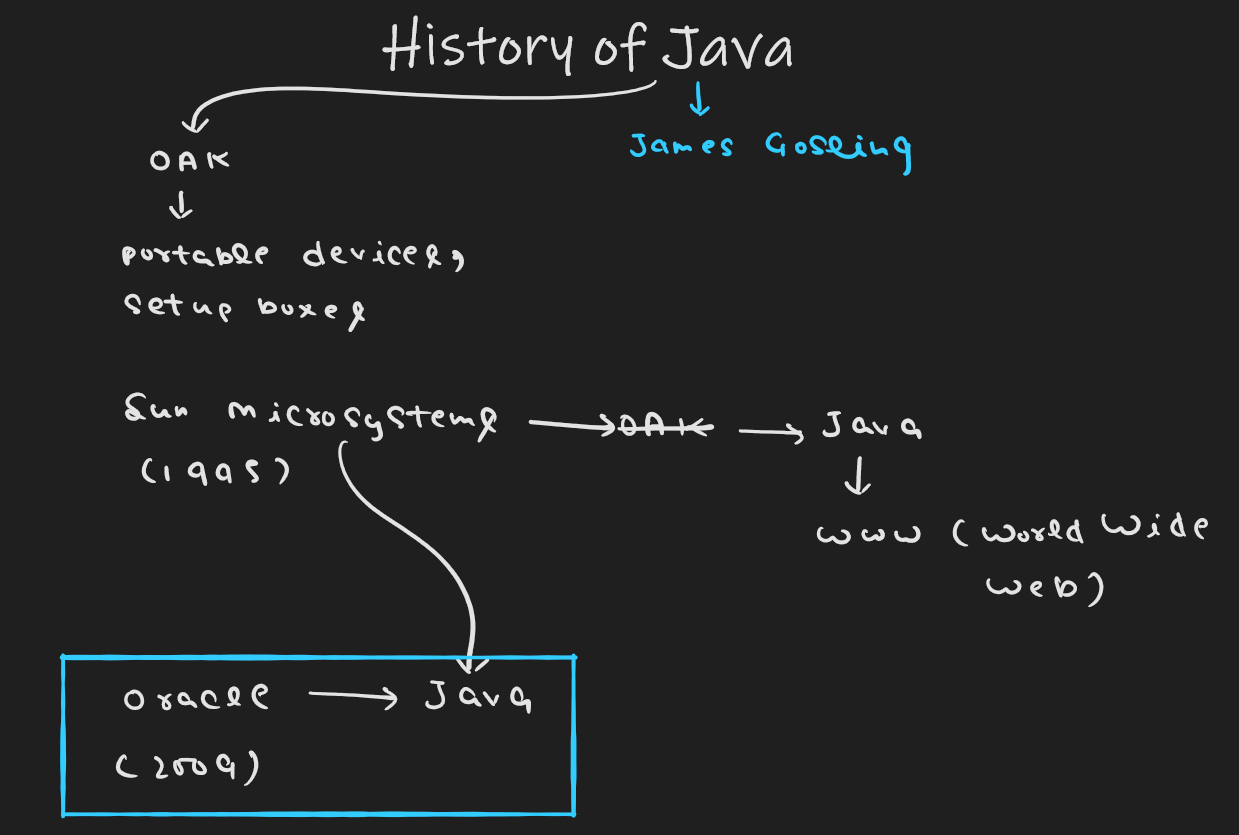 History of Java
James Gosling
OAK
portable devices,
setup boxes
Sun microsystems OAK Java
(1995)
www (World Wide
web)
Oracle Java
(2009)